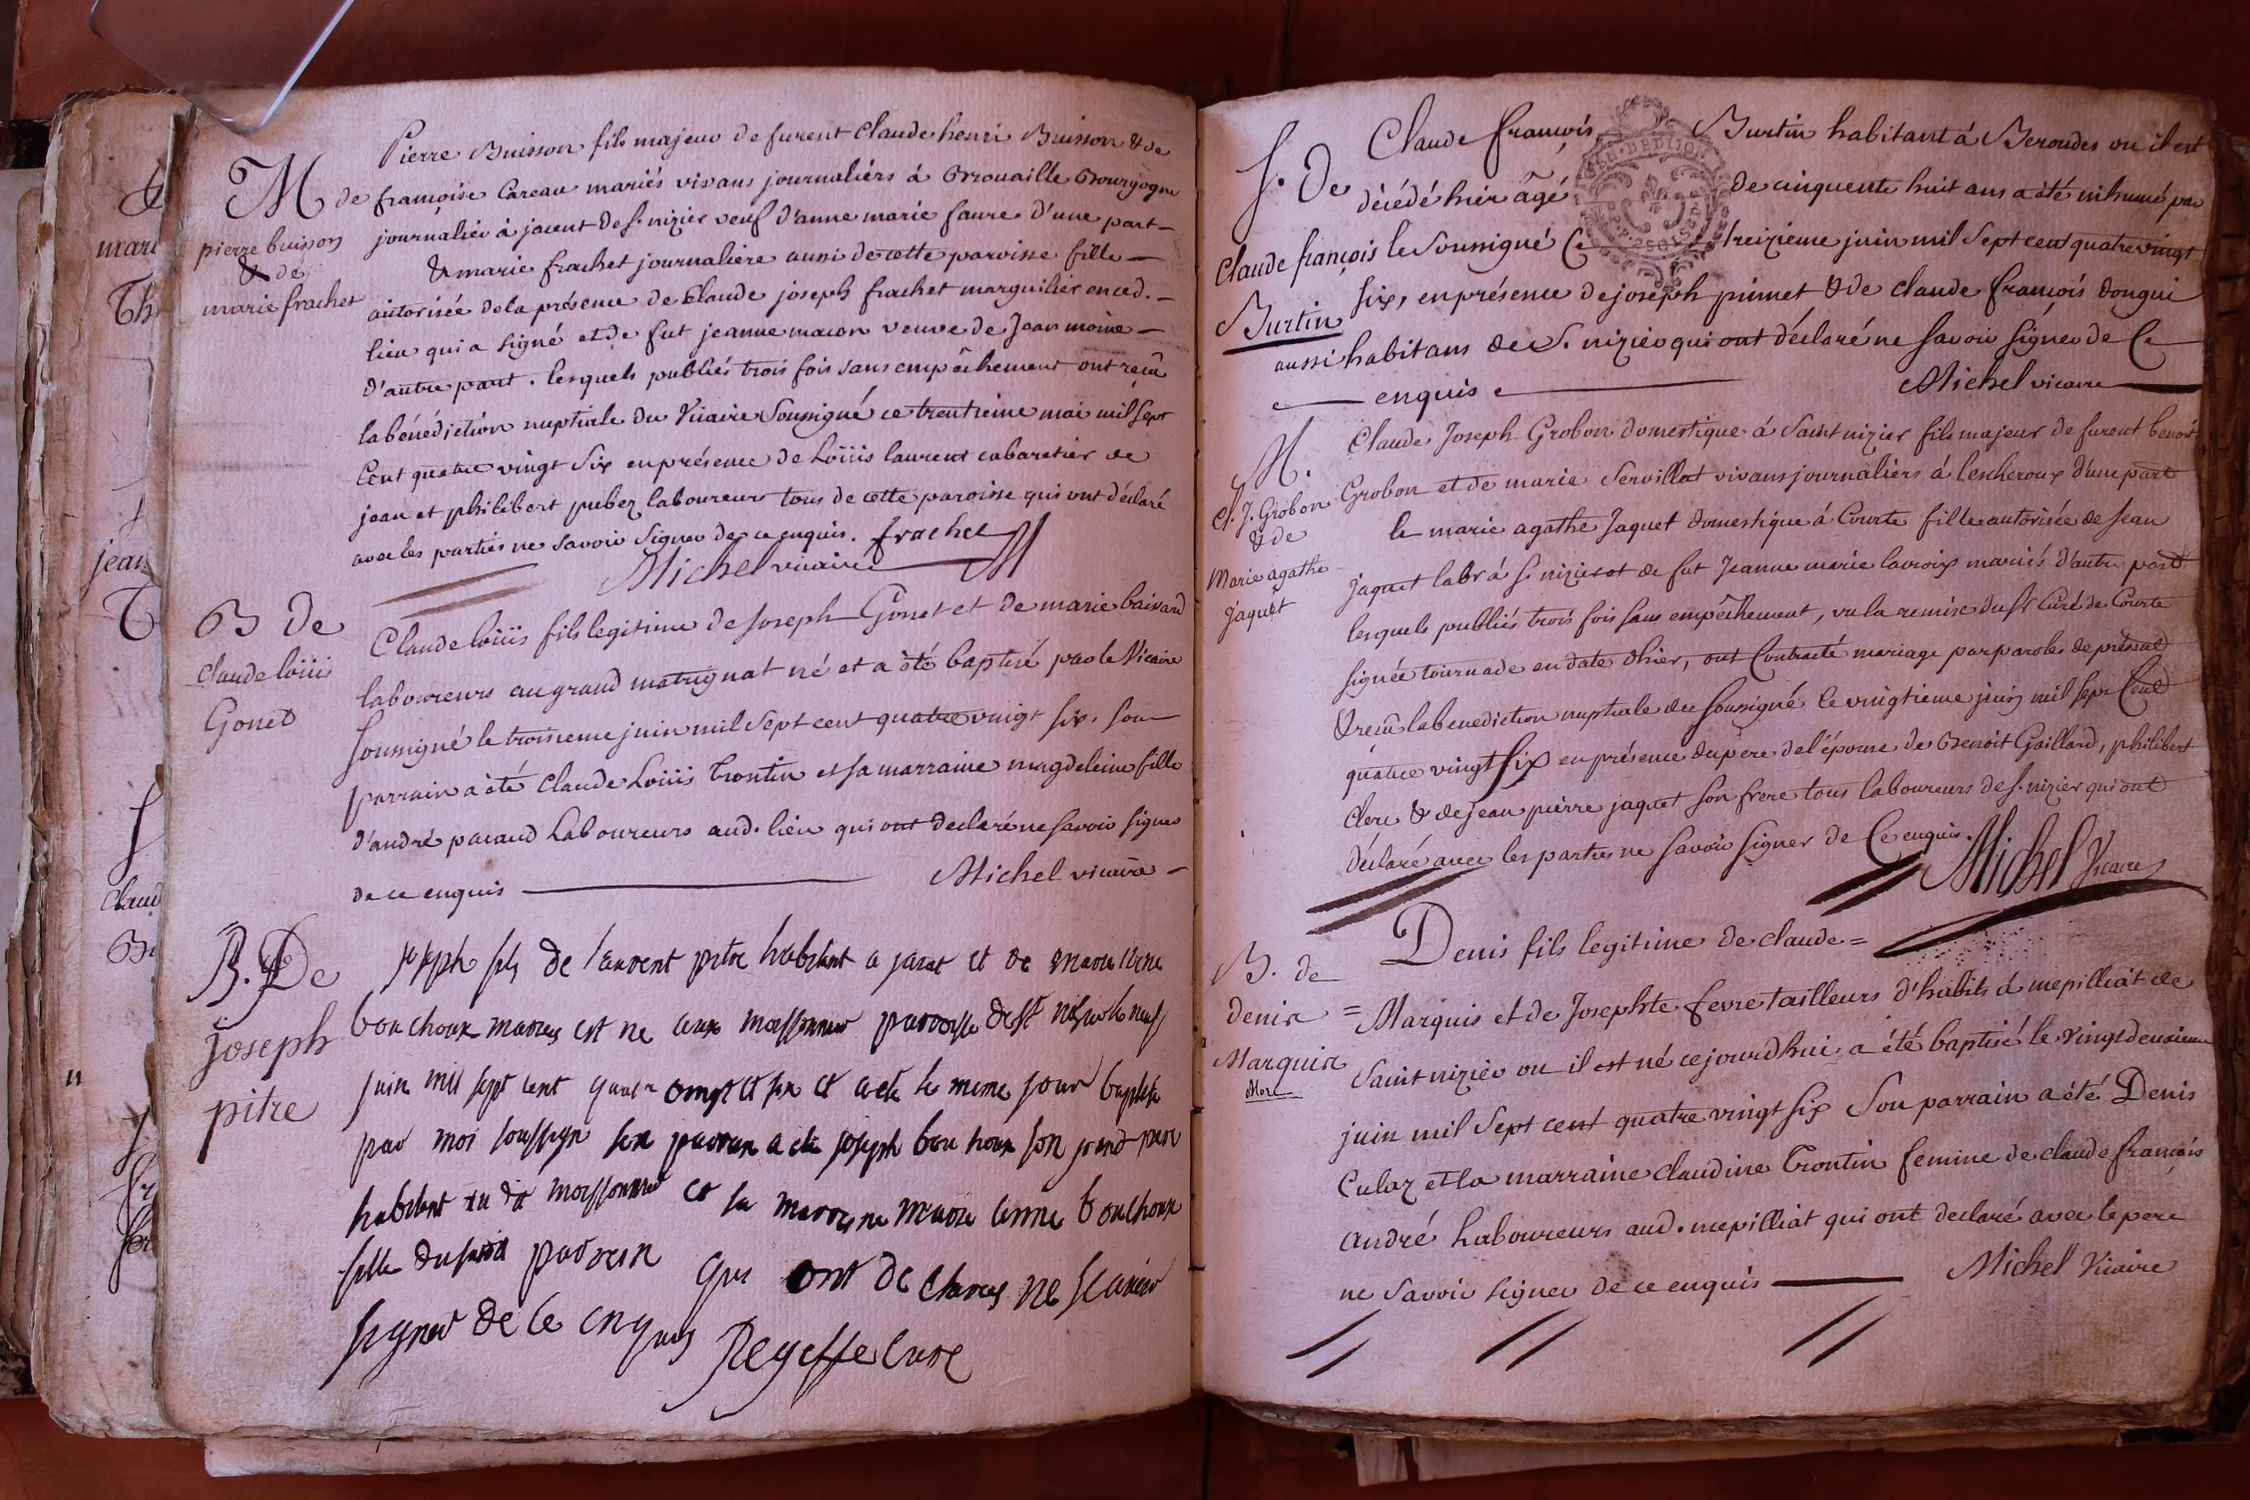 M de
pierre buisson
& de
marie frachet
Pierre Buisson fils majeur de furent Claude henri Buisson & de
de françoise Careau mariés vivans journaliers à Brouaille Bourgogne
journalier à jacent de s. nizier veuf d'anne marie faure d'une part
& marie frachet journaliere aussi de cette paroisse fille
autorisée de la présence de Claude joseph frachet marguilier en ced.
lieu qui a signé et de fut jeanne macon veuve de Jean moine
d'autre part. lesquels publiés trois fois sans empêchement ont reçu
la bénédiction nuptiale du Vicaire Soussigné ce trentieme mai mil sept
Cent quatre vingt Six en présence de Loüis laurent cabaretier de
jean et philibert pubez laboureurs tous de cette paroisse qui ont déclaré
avec les parties ne savoir signer de ce enquis. frachet
Michel vicaire
B de
Claude loüis
Gonet
Claude loüis fils legitime de Joseph Gonet et de marie
laboureurs au grand matrignat né et a été baptisé par le Vicaire
soussigné le troisieme juin mil Sept cent quatre vingt six, son
parrain a été Claude Loüis Trontin et sa marraine magdeleine fille
d'andré pacaud Laboureurs aud. lieu qui ont declaré ne savoir signer
de ce enquis Michel vicaire
B. De
joseph
pitre
joseph fils de laurent pitre habitant a jacet et de marie
bouchoux maries est ne aux moissonnier parroisse de st nisier le neuf
juin mil sept cent quatre vingt et six et a ete le meme jour baptise
par moi soussigne son parrain a ete joseph bouchoux son grand pere
habitant au dit moissonnier et sa marreine marie bouchoux
fille dudit parrein qui ont de clares ne scavoir
signer de ce enquis curé
S. De
Claude françois
Burtin
Claude françois Burtin habitant à Beroudes ou il est
décédé hier âgé de cinquente huit ans a été inhumé par
le Soussigné Ce treizieme juin mil Sept cent quatre vingt
six, en présence de joseph pinnet & de claude françois dongui
aussi habitans de S. nizier qui ont déclaré ne savoir signer de Ce
enquis Michel vicaire
M.
Cl. J. Grobon
& de
Marie agathe
Jaquet
Claude Joseph Grobon domestique à Saint nizier fils majeur de furent benoit
Grobon et de marie Servillat vivans journaliers à lescheroux d'une part
le marie agathe Jaquet domestique à Courte fille autorisée de Jean
Jaquet labr à s. nizier et de fut Jeanne marie lacroix mariés d'autre part
lesquels publiés trois fois sans empêchement, vu la remise du Sr Curé de Courte
signée tournade en date d'hier, ont Contracté mariage par paroles de présent
& reçu la benediction nuptiale du soussigné le vingtieme juin mil sept Cent
quatre vingt Six en présence du pere de l'épouse de Benoit Gaillard, philibert
clerc & de jean pierre jaquet son frere tous laboureurs de s. nizier qui ont
déclaré avec les parties ne savoir signer de Ce enquis. Michel Vicaire
B. de
denis
Marquis
Denis fils legitime de claude =
= Marquis et de Josephte fevre tailleurs d'habits à mepilliat de
Saint nizier ou il est né ce jourd'hui, a été baptisé le vingt deuxieme
juin mil Sept cent quatre vingt six Son parrain a été Denis
Culaz et la marraine claudine Trontin femme de claude françois
andré Laboureurs aud. mepilliat qui ont declaré avec le pere
ne savoir signer de ce enquis Michel Vicaire